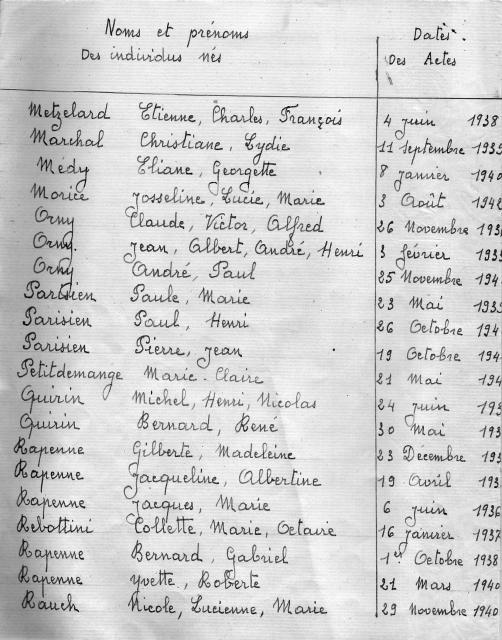 Noms et prénoms Datès.
Des individus nés Des Actes
Metzelard Etienne, Charles, François 4 juin 1938
Marchal Christiane, Lydie 11 septembre 193
Médy Eliane, Georgette 8 janvier 194
Morice Josseline, Lucie, Marie 3 Août 194
Orny Claude, Victor, Alfred 26 Novembre 193
Orny. Jean, Albert, André, Henri 3 février 193
Orny André, Paul 25 Novembre 194
Parisien Paule, Marie 23 Mai 193
Parisien Paul, Henri 26 Octobre 194
Parisien Pierre, Jean 19 Octobre 194
Petitdemange Marie-Claire 21 Mai 194
Quirin Michel, Henri, Nicolas 24 juin 193
Quirin Bernard, René 30 Mai 193
Rapenne Gilberte, Madeleine 23 Décembre 193
Rapenne Jacqueline, Albertine 19 Avril 193
Rapenne Jacques, Marie 6 juin 1936
Rebottini Collette, Marie, Octavie 16 janvier 1937
Rapenne Bernard, Gabriel 1er Octobre 1938
Rapenne Yvette, Roberte 21 Mars 1940
Rauch Nicole, Lucienne, Marie 29 Novembre 1940